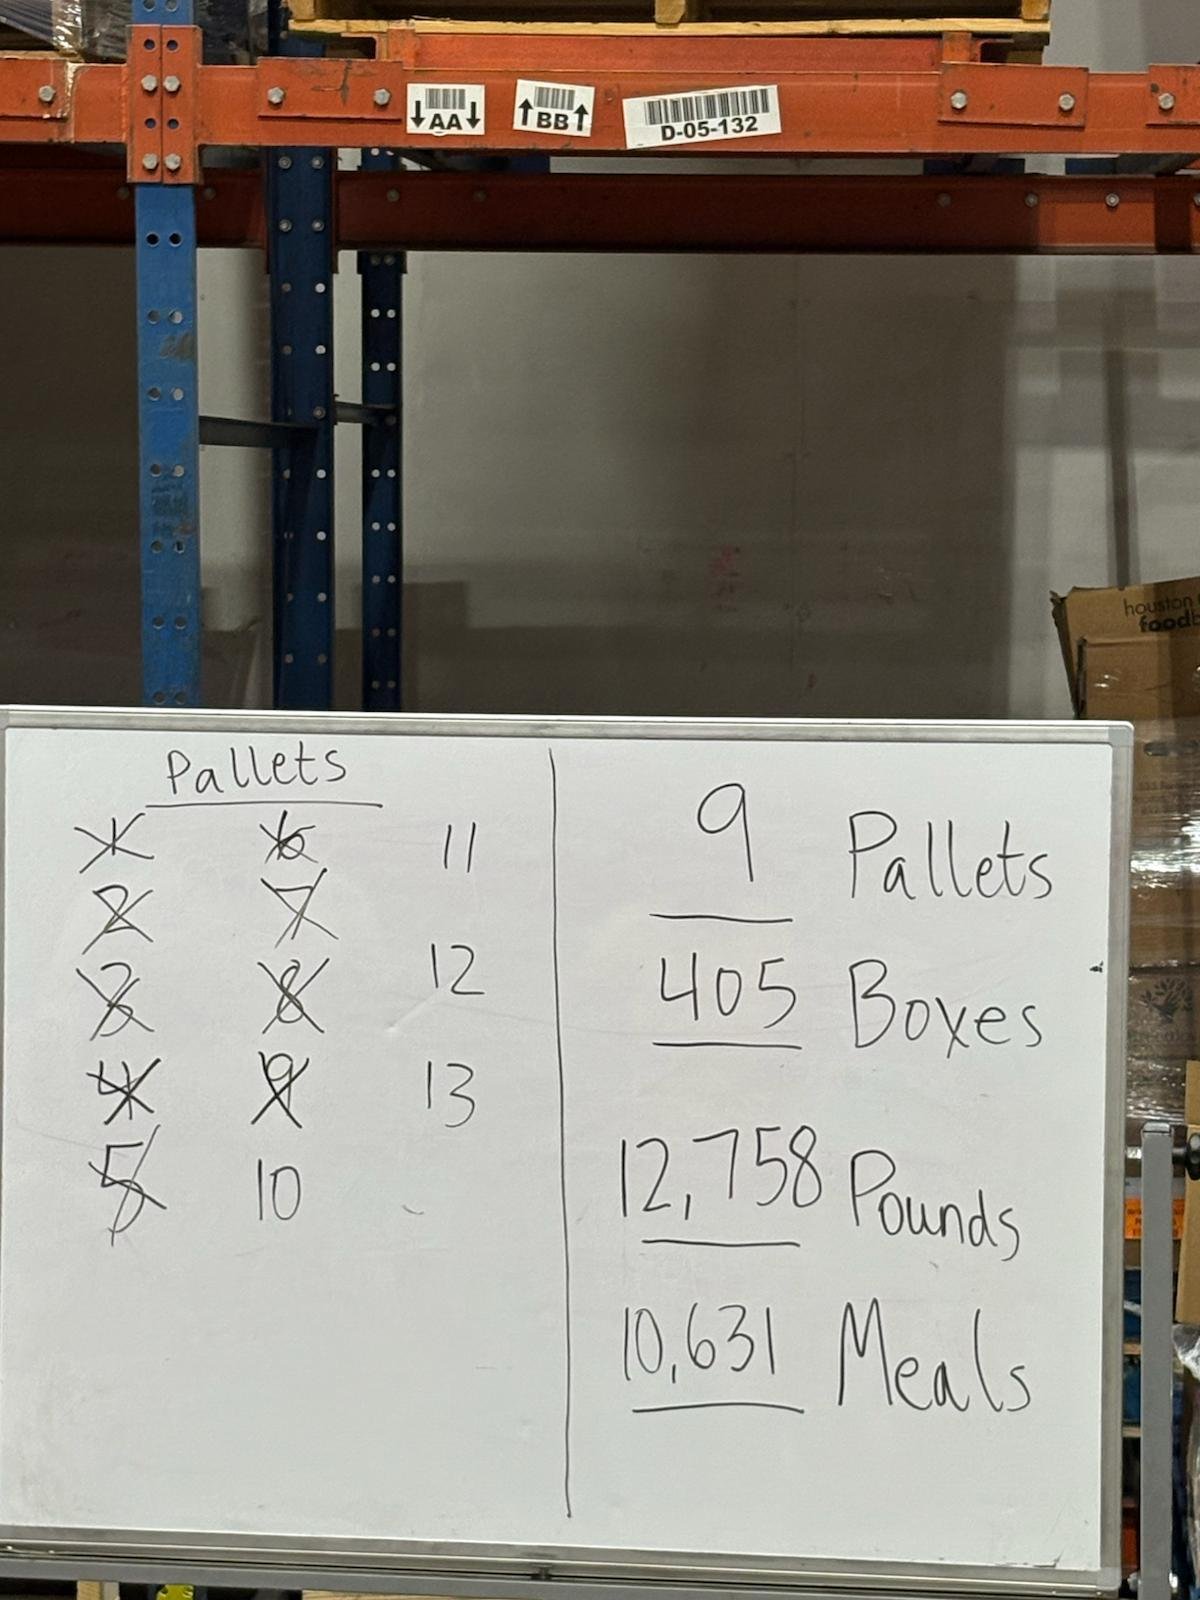 ↓AA↓ ↑BB↑ D-05-132
houston
Pallets
1 6 11
2 7
3 8 12
4 9 13
5 10
9 Pallets
405 Boxes
12,758 Pounds
10,631 Meals